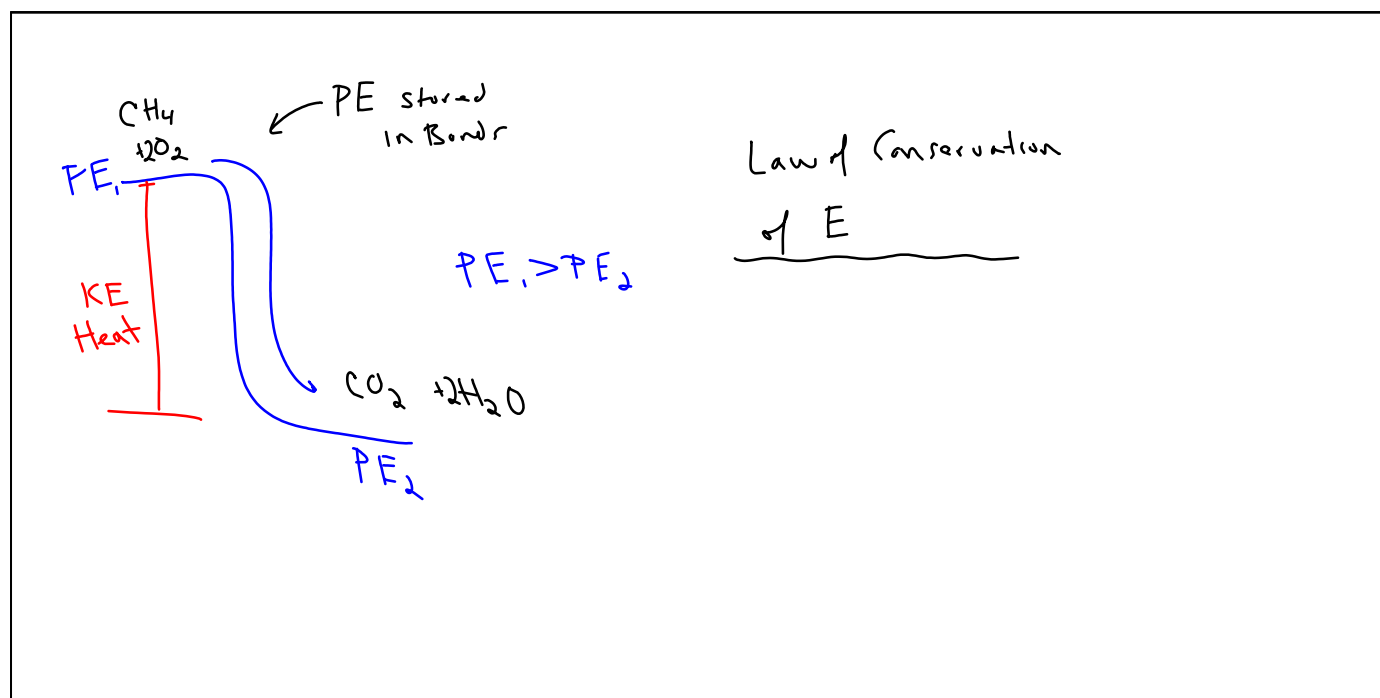 CH4
+2O2
PE stored
in Bonds
PE1
KE
Heat
PE1 > PE2
CO2 +2H2O
PE2
Law of Conservation
of E